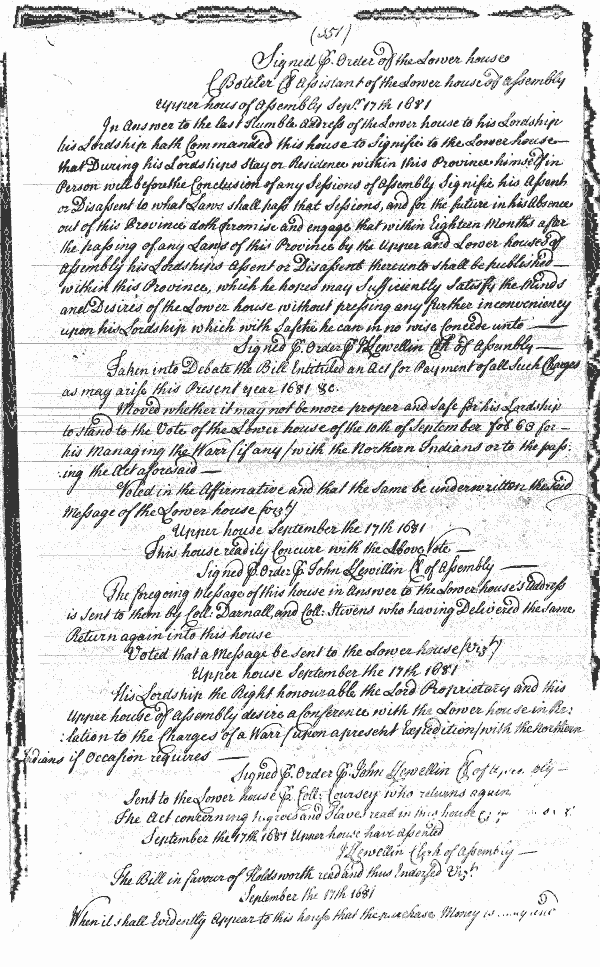 (351)
Signed p. Order of the Lower house
C Boteler Cl Assistant of the Lower house of Assembly
Upper hous of Assembly Sept. 17th 1681
In Answer to the last Humble Address of the Lower house to his Lordship
his Lordship hath Commanded this house to Signifie to the Lower house
that During his Lordships Stay or Residence within this Province himself in
Person will before the Conclusion of any Sessions of Assembly Signifie his Assent
or Disassent to what Laws shall pass that Sessions, and for the future in his Absence
out of this Province doth promise and engage that within Eighteen Months after
the passing of any Laws of this Province by the Upper and Lower houses of
Assembly his Lordships Assent or Disassent thereunto shall be published
within this Province, which he hopes may Sufficiently Satisfy the Minds
and Desires of the Lower house without pressing any further inconveniency
upon his Lordship which with Safetie he can in no wise Concede unto —
Signed p. Order p J Llewellin Cl of Assembly —
Taken into Debate the Bill Entituled an Act for Payment of all Such Charges
as may arise this Present year 1681 &c.
Moved whether it may not be more proper and Safe for his Lordship
to stand to the Vote of the Lower house of the 10th of September fol 63 for —
his Managing the Warr (if any) with the Northern Indians or to the pass:
:ing the Act aforesaid —
Voted in the Affirmative and that the same be underwritten the said
Message of the Lower house (vizt)
Upper house September the 17th 1681
This house readily Concurr with the Above Vote —
Signed p. Order p John Llewellin Cl of Assembly —
The foregoing Message of this house in Answer to the Lower house's address
is sent to them by Coll: Darnall, and Coll: Stevens who having Delivered the same
Return again into this house
Voted that a Message be sent to the Lower house (vizt)
Upper house September the 17th 1681
His Lordship the Right honourable the Lord Proprietary and this
Upper house of Assembly desire a Conference with the Lower house in Re:
:lation to the Charges of a Warr (upon a present Expedition) with the Northern
Indians if Occasion requires —
Signed p. Order p John Llewellin Cl of
Sent to the Lower house p Coll: Coursey who returns again
The Act concerning Negroes and Slaves read in this house
September the 17th 1681 Upper house have assented
J Llewellin Clerk of Assembly —
The Bill in favour of Holdsworth read and thus Endorsed Vizt
September the 17th 1681
When it shall Evidently Appear to this house that the purchase Money is